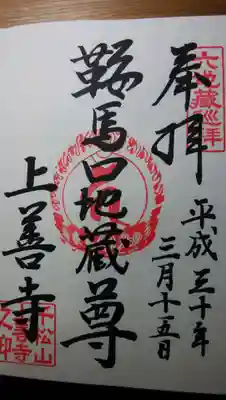 奉拝
六地蔵巡拝
平成三十年
三月十五日
鞍馬口地蔵尊
上善寺
千松山
上善寺
之印